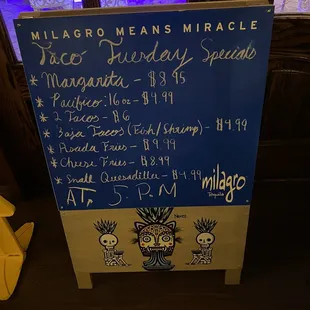 MILAGRO MEANS MIRACLE
Taco Tuesday Specials
* Margarita - $8.95
* Pacifico: 16oz - $4.99
* 2 Tacos - $6
* Baja Tacos (Fish/Shrimp) - $4.99
* Asada Fries - $9.99
* Cheese Fries - $8.49
* Small Quesadilla - $4.99
milagro
Tequila
AT, 5 P.M